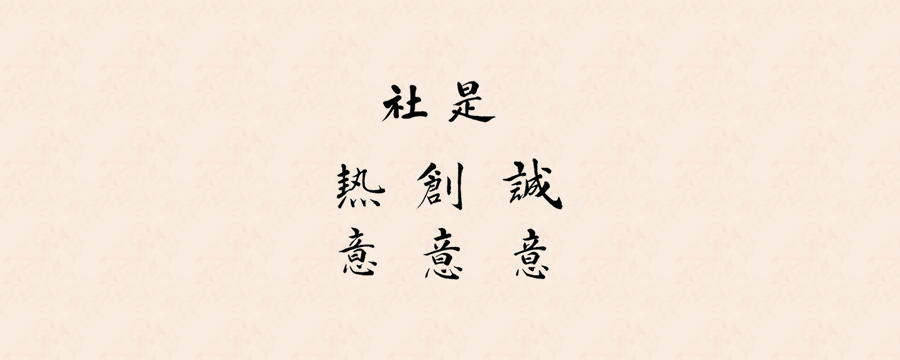 社是
誠意
創意
熱意